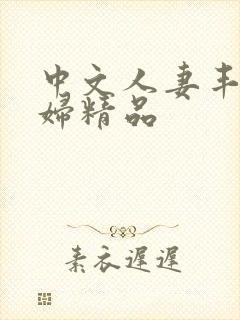 中文人妻丰
婦精品
素衣遲遲